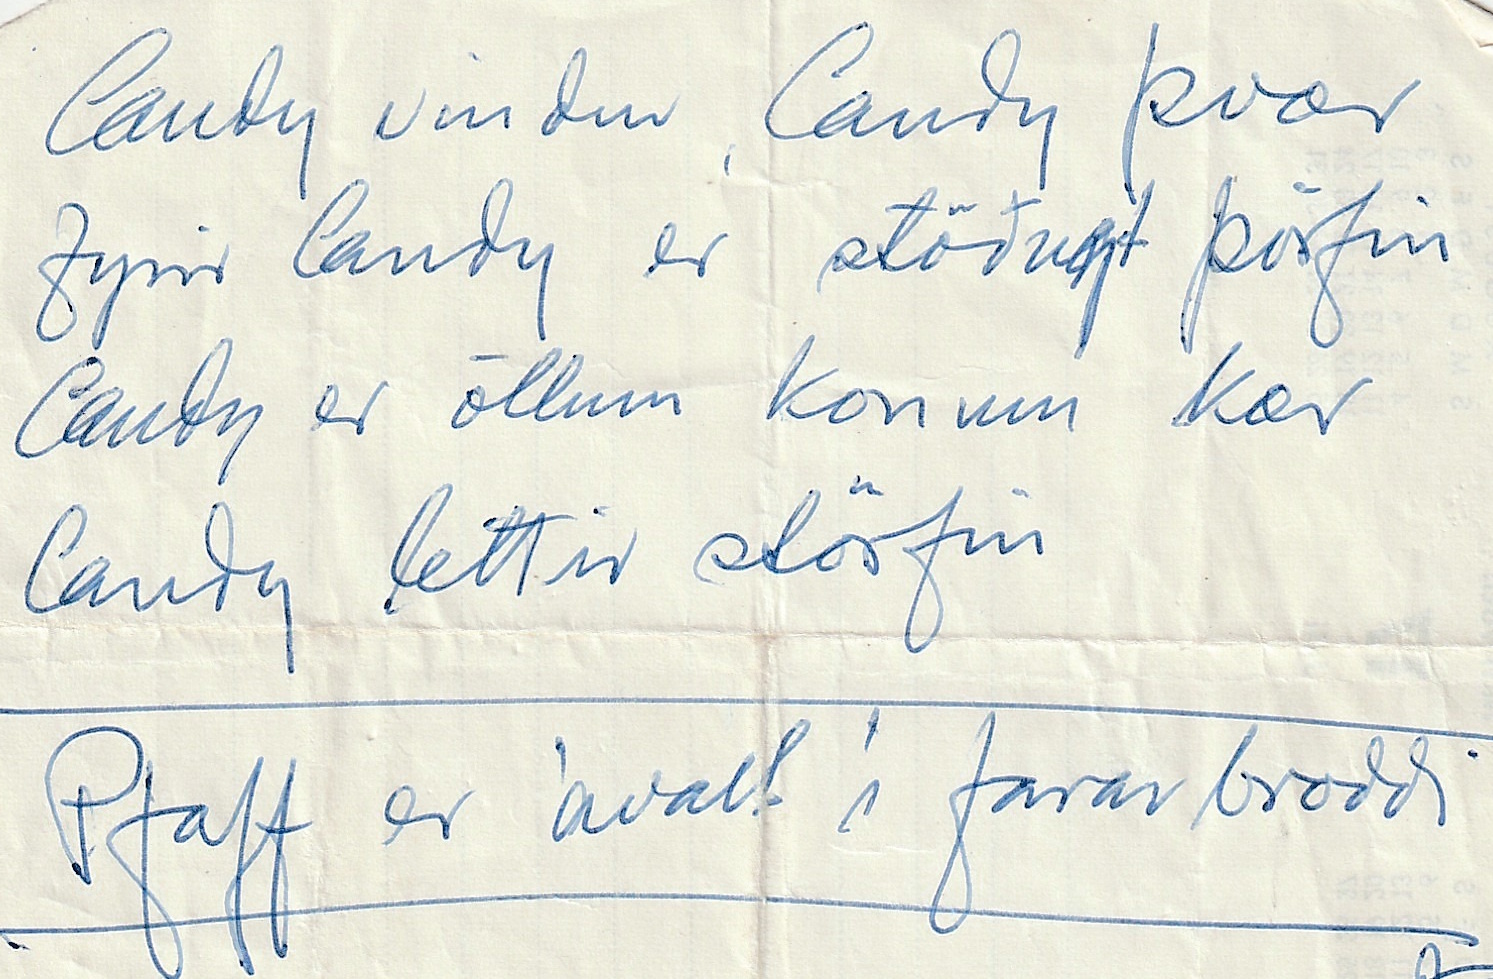 Candy vindur, Candy þvær
fyrir Candy er stöðugt þörfin
Candy er öllum konum kær
Candy léttir störfin
Pfaff er ávalt í fararbroddi